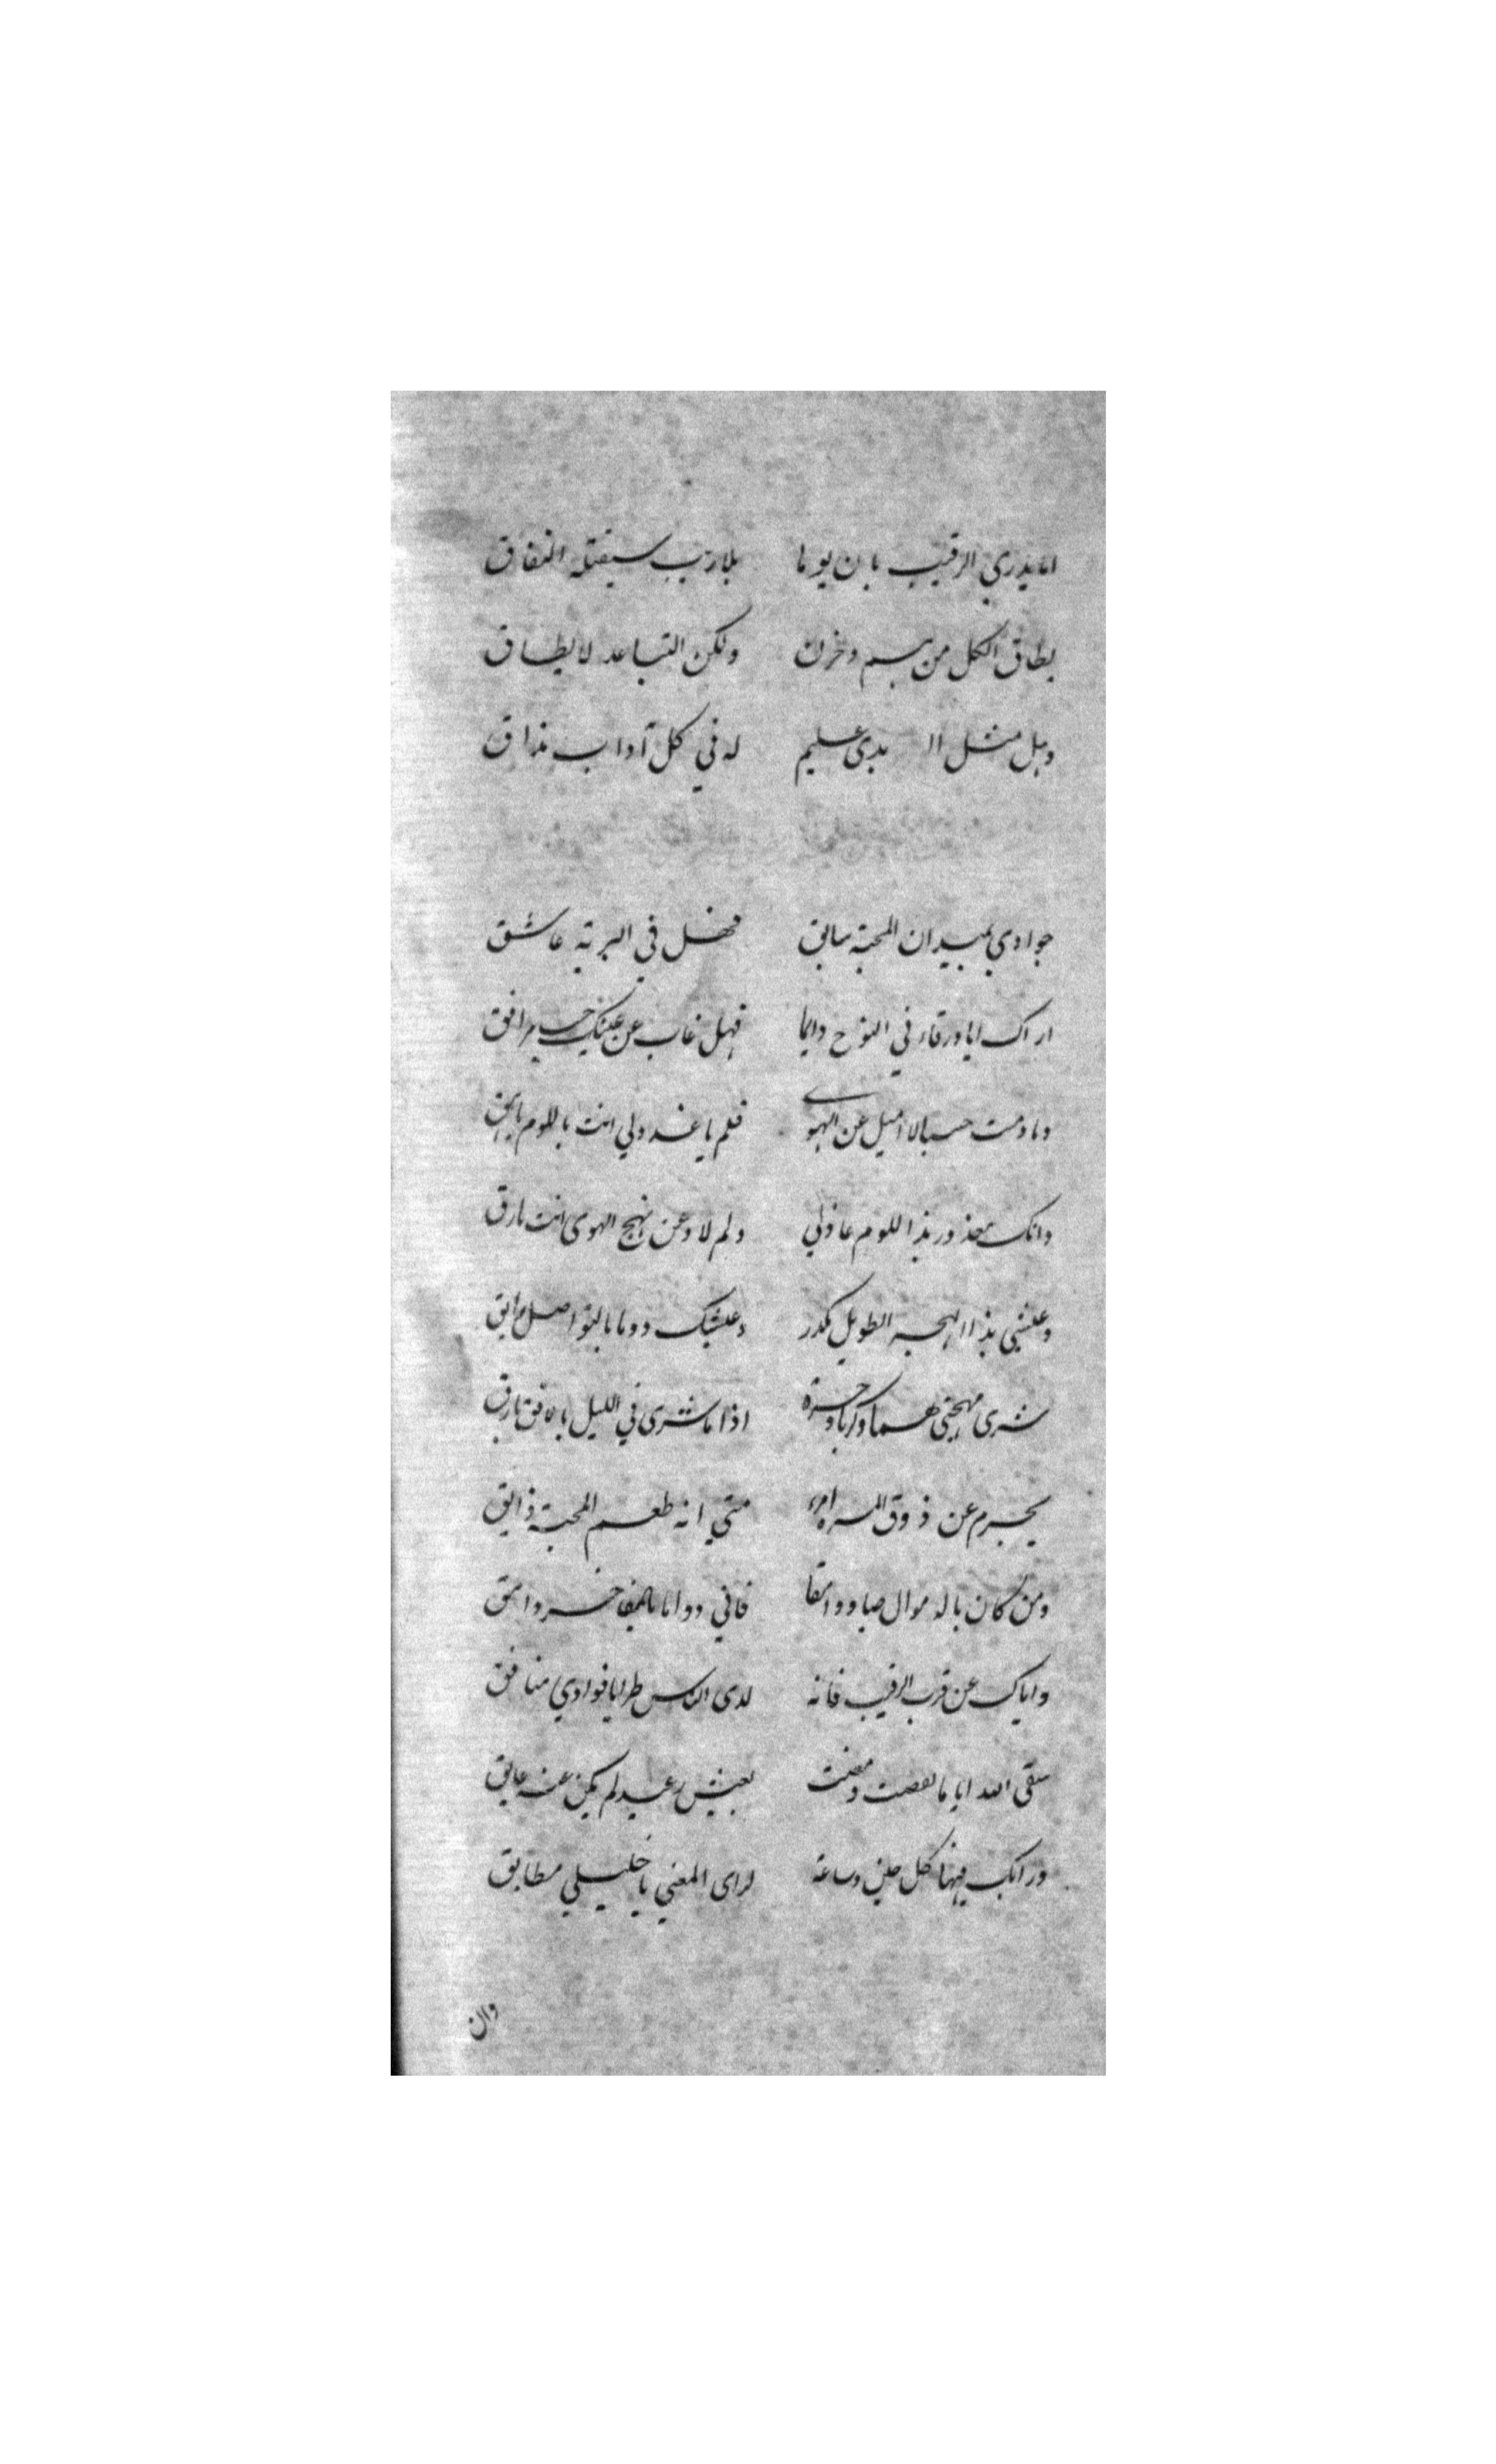 اما يدري الرقيب بان يوما بلا ريب سيقتله النفاق
يطاق الكل من هم وحزن ولكن التباعد لا يطاق
وهل مثل ال هدى عليم له في كل آداب مذاق
جوادي بميدان المحبة سابق فهل في البرية عاشق
اراك ايا ورقاء في النوح دايما فهل غاب عن عينيك مرافق
وما دمت حيا لا اميل عن الهوى فلم يا عذولي انت باللوم
وانك معذور بذا اللوم عاذلي ولم لا وعن نهج الهوى انت مارق
وعيشي بذا الهجر الطويل مكدر وعيشك دوما بالتواصل رايق
شرى مهجتي هما وكربا وحسرة اذا ما شرى في الليل بارق
يحرم عن ذوق المسره امرء متى انه طعم المحبة ذايق
ومن كان بالاموال صبا ووامقا فاني دواما بالمفاخر وامق
واياك عن قرب الرقيب فانه لدى الناس طرا يا فوادي منافق
سقى الله اياما تقضت ومضت بعيش رغيد لم يكن عنه عايق
ورايك فيها كل حين وساعة لراى المعنى يا خليلي مطابق
وان